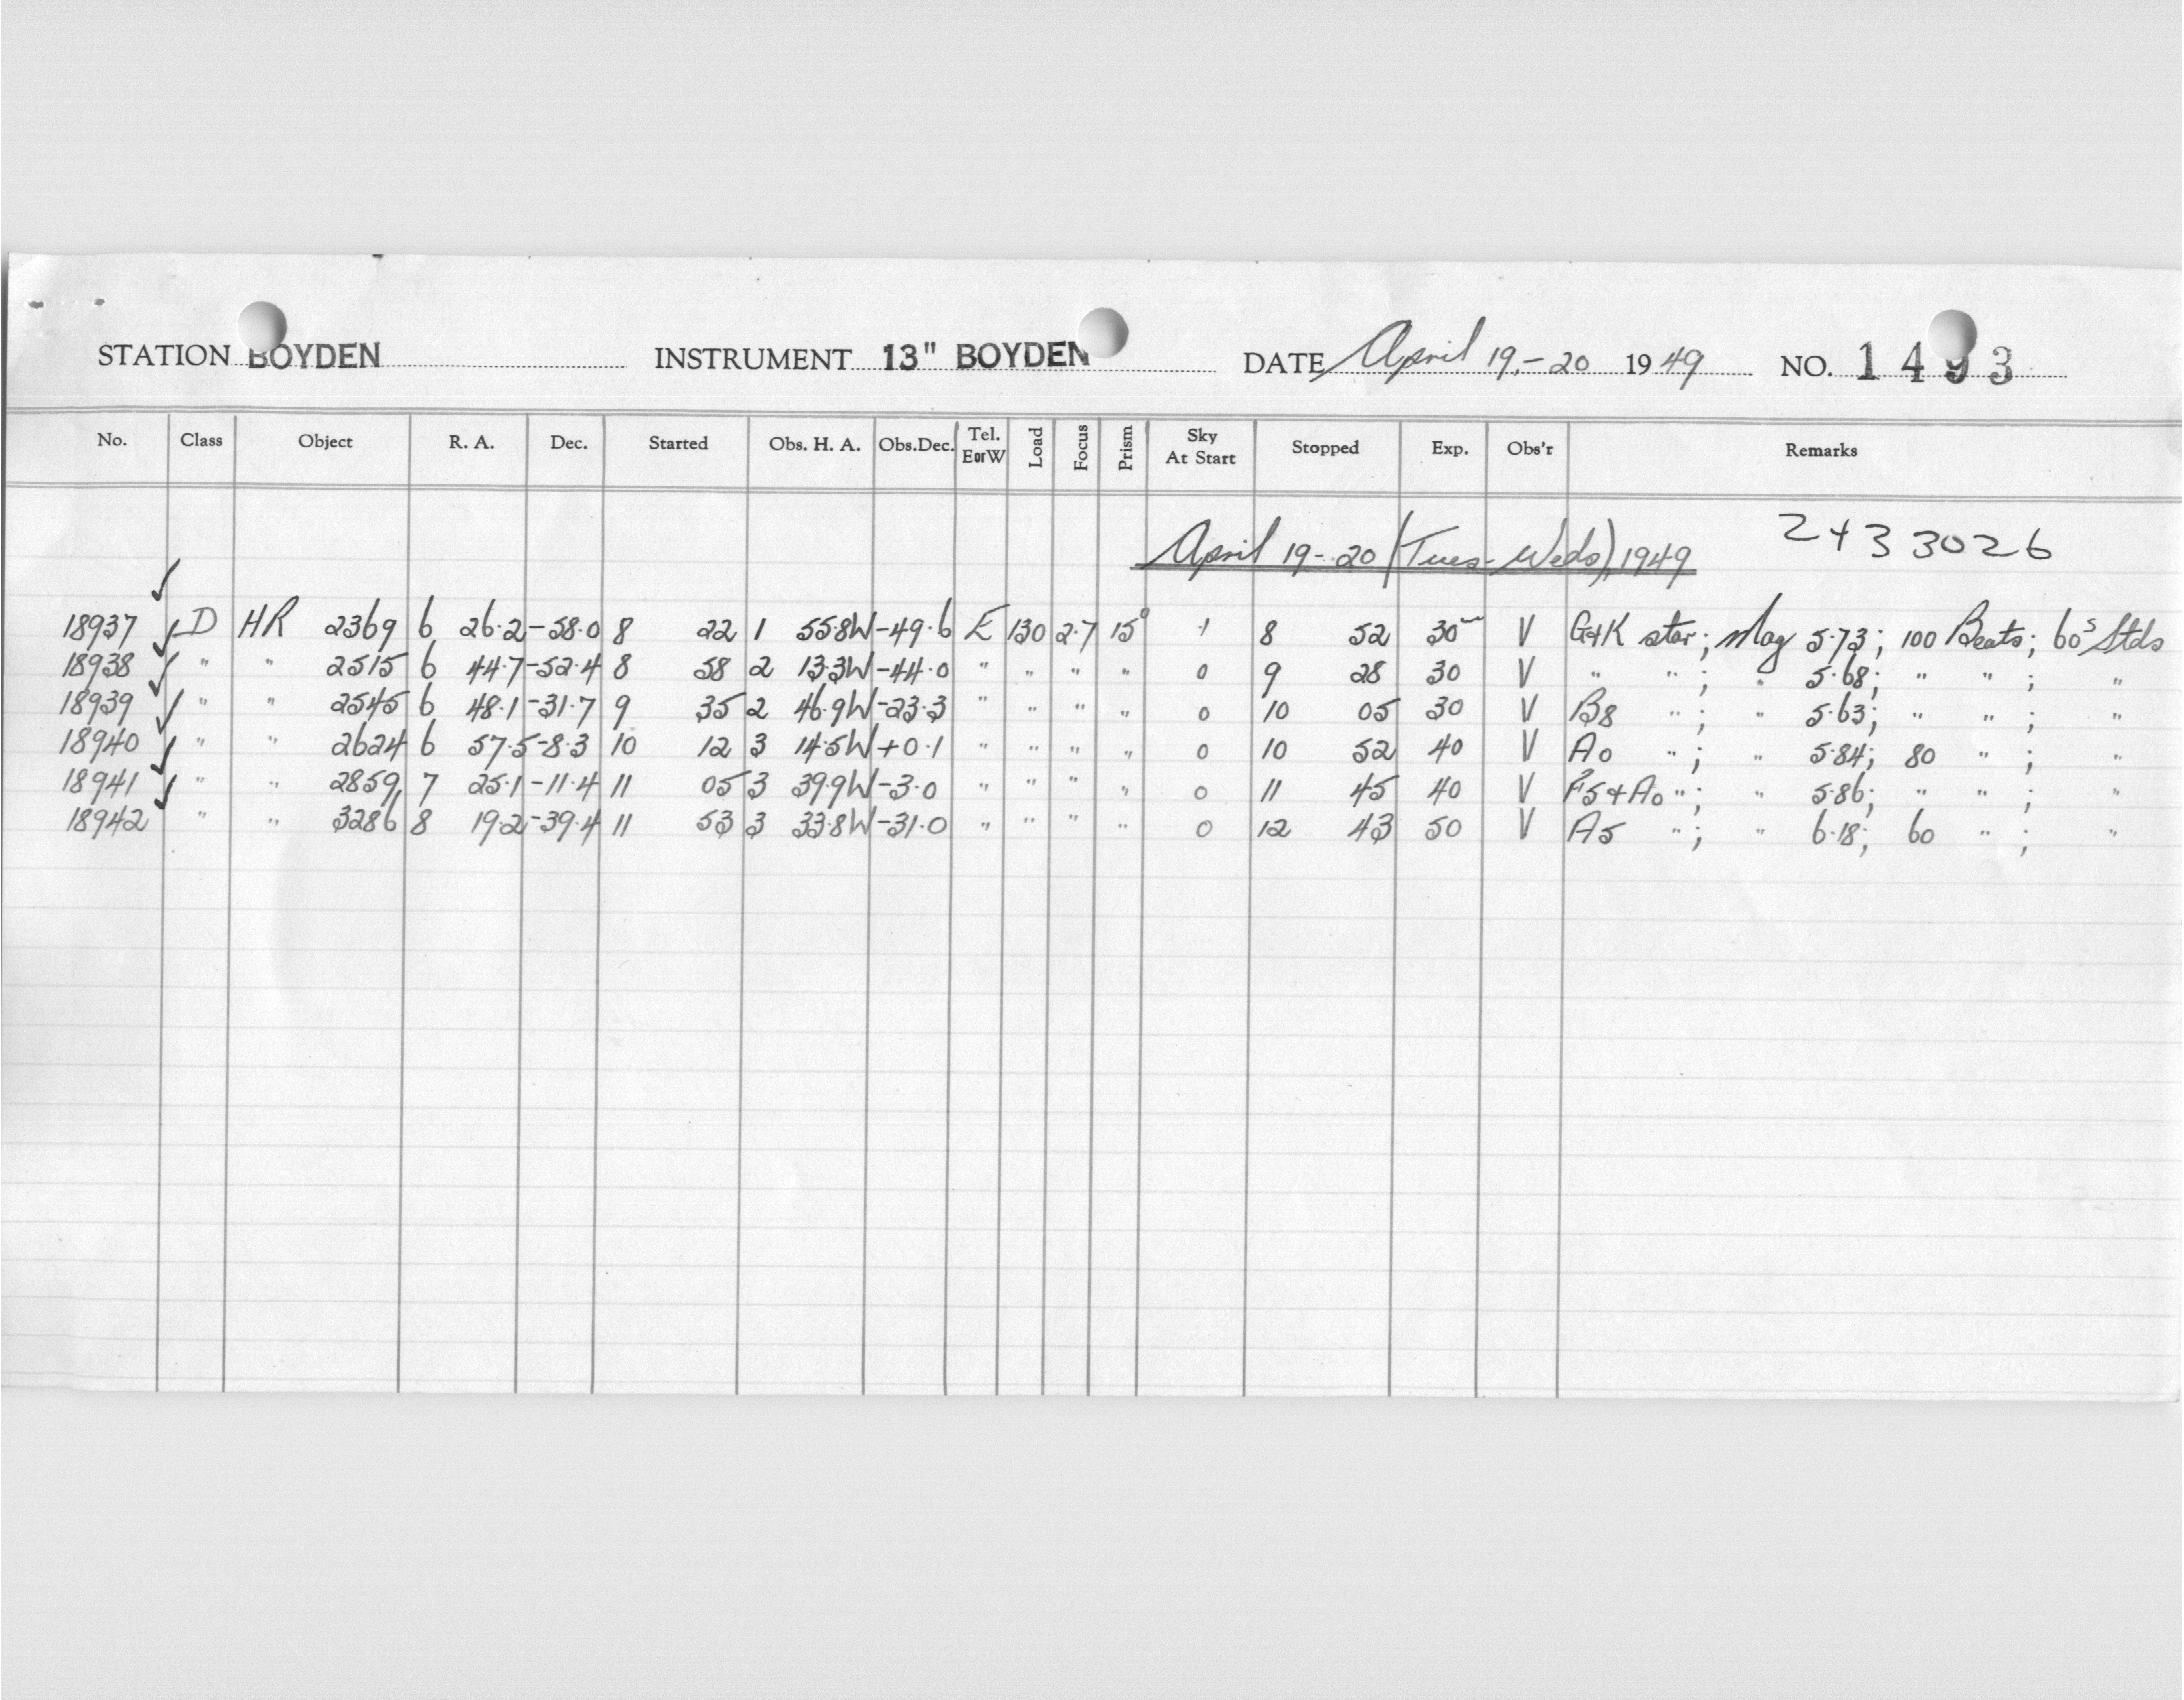 STATION BOYDEN INSTRUMENT 13" BOYDEN DATE April 19,-20 1949 NO. 1493
No. Class Object R. A. Dec. Started Obs. H. A. Obs.Dec. Tel. E or W Load Focus Prism Sky At Start Stopped Exp. Obs'r Remarks
April 19-20 (Tues-Weds), 1949 2433026
18937 D HR 2369 6 26.2 -58.0 8 22 1 55.8W -49.6 E 130 2.7 15° 1 8 52 30m V G+K star; Mag 5.73; 100 Beats; 60s Stds
18938 " " 2515 6 44.7 -52.4 8 58 2 13.3W -44.0 " " " " 0 9 28 30 V " " ; " 5.68; " " ; "
18939 " " 2545 6 48.1 -31.7 9 35 2 46.9W -23.3 " " " " 0 10 05 30 V B8 " ; " 5.63; " " ; "
18940 " " 2624 6 57.5 -8.3 10 12 3 14.5W +0.1 " " " " 0 10 52 40 V A0 " ; " 5.84; 80 " ; "
18941 " " 2859 7 25.1 -11.4 11 05 3 39.9W -3.0 " " " " 0 11 45 40 V F5+A0 " ; " 5.86; " " ; "
18942 " " 3286 8 19.2 -39.4 11 53 3 33.8W -31.0 " " " " 0 12 43 50 V A5 " ; " 6.18; 60 " ; "